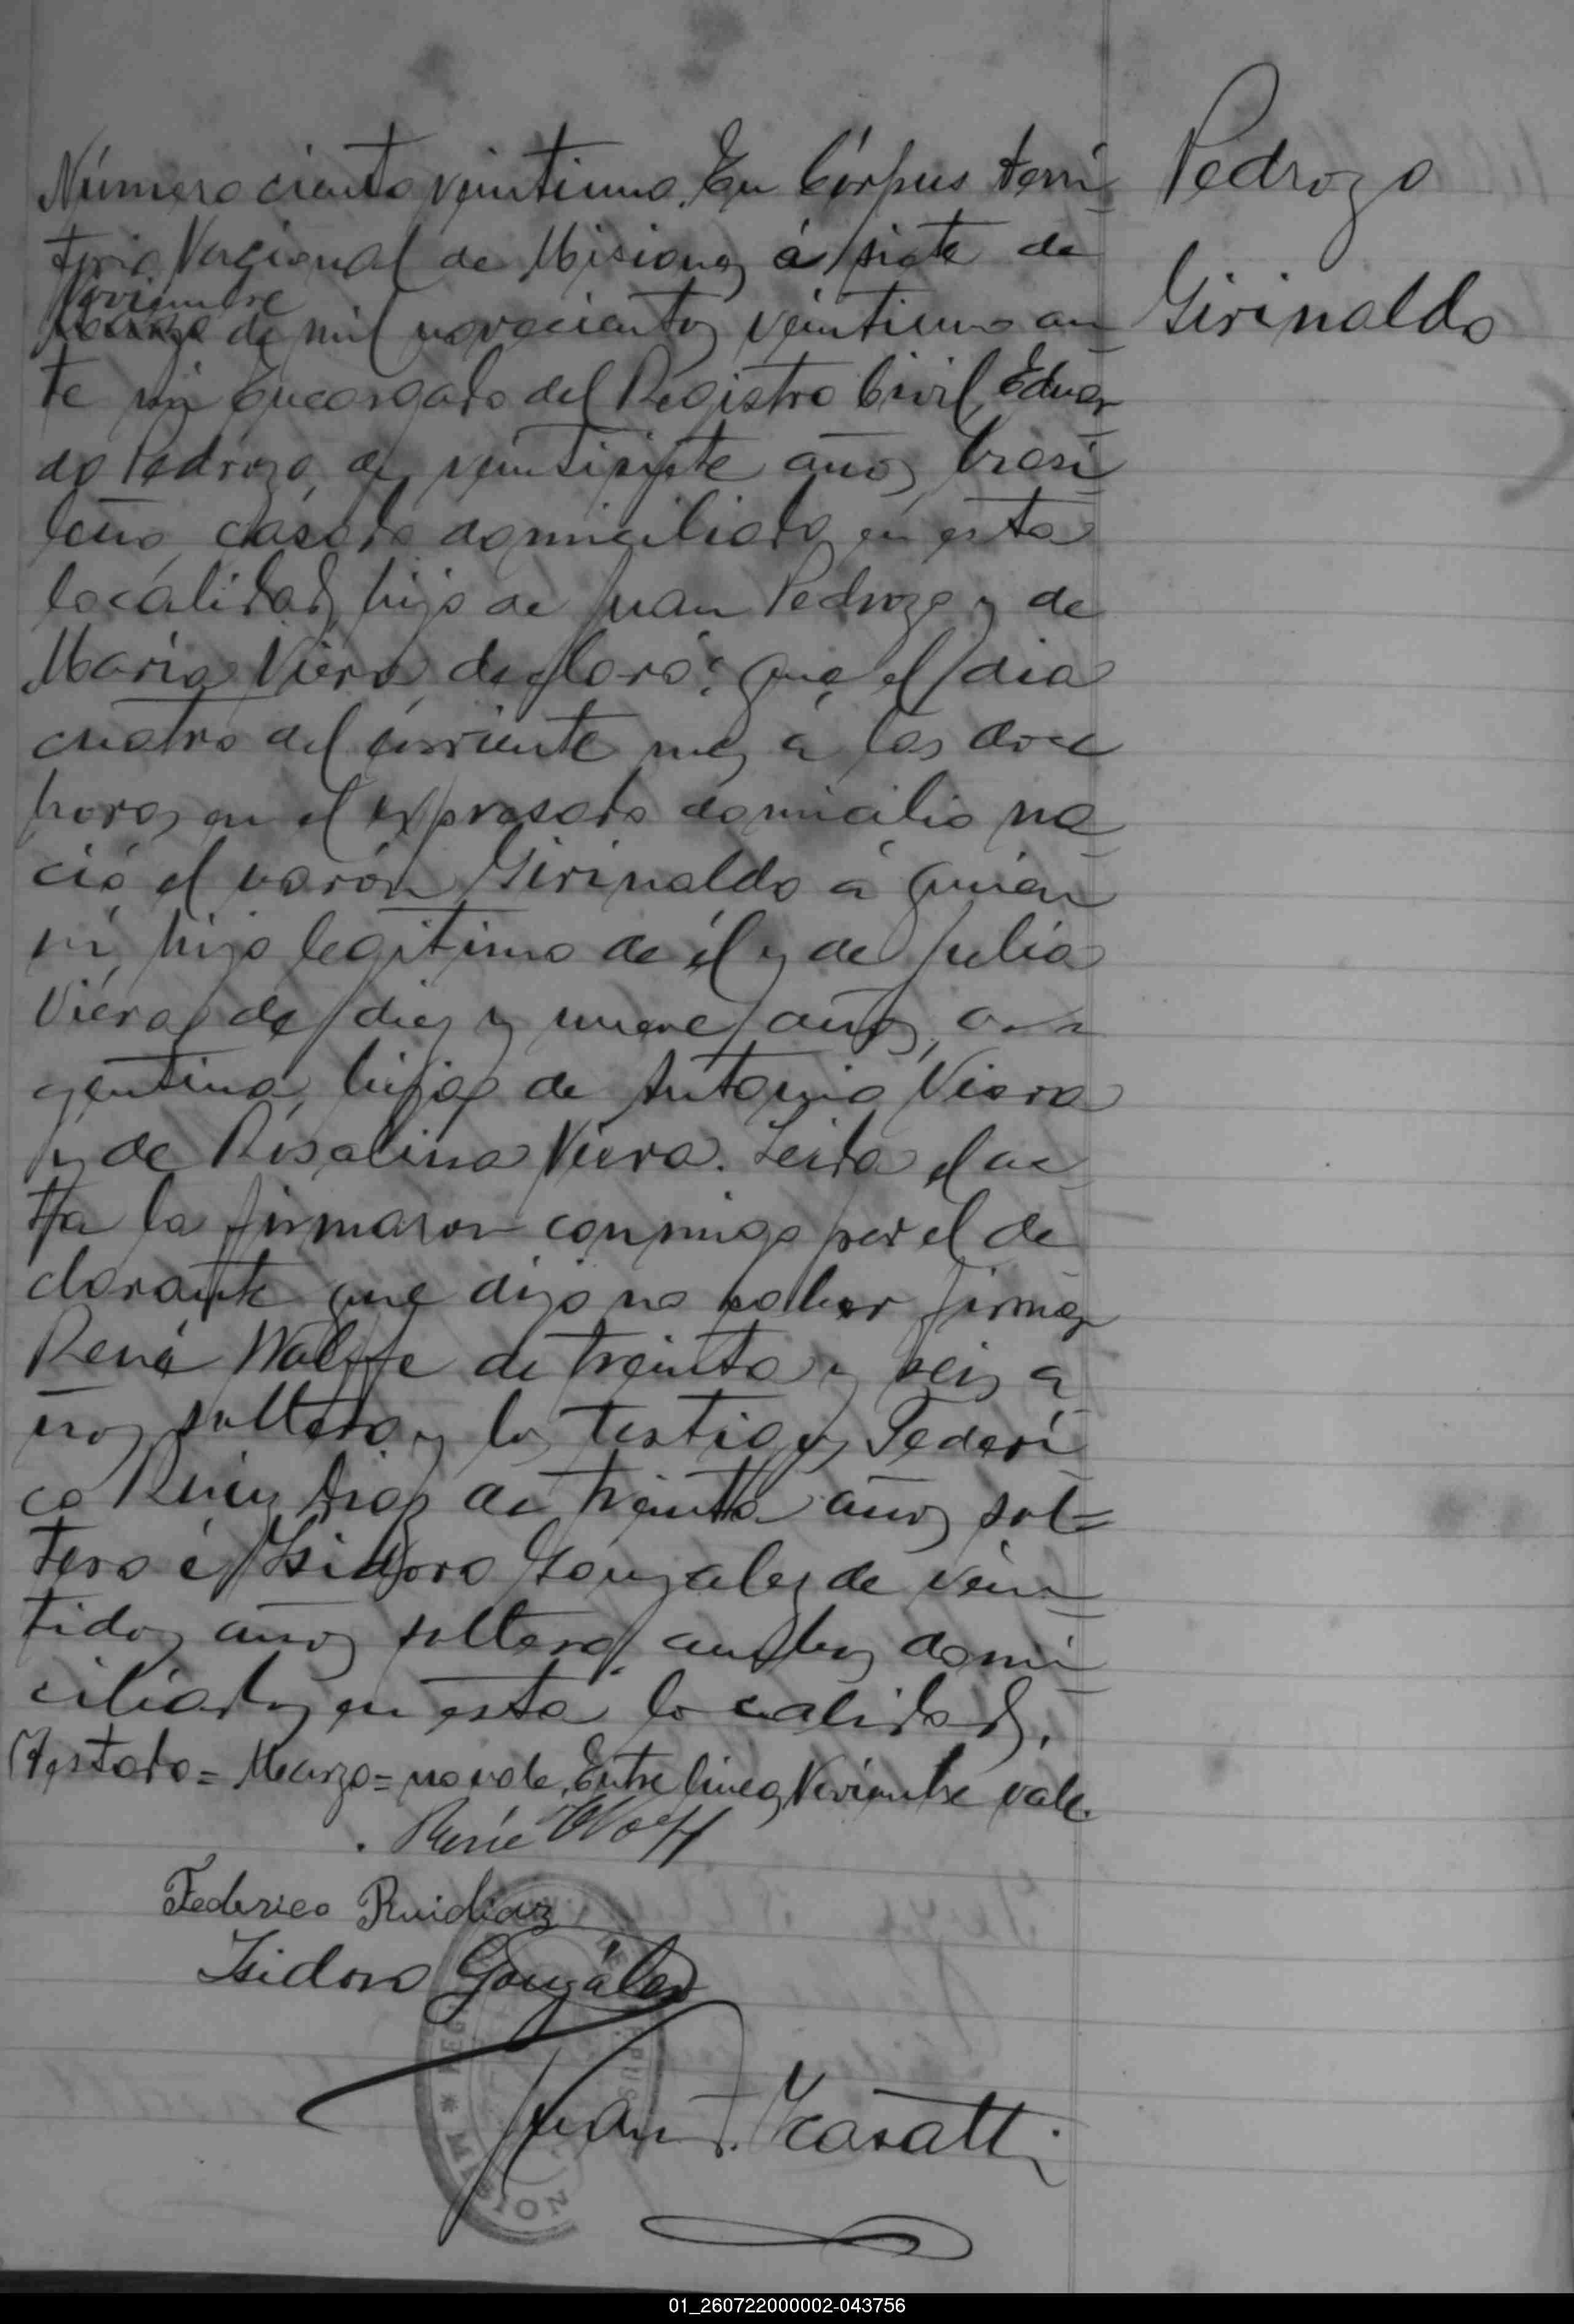 Pedrozo
Girinaldo
Número ciento veintiuno. En Córpus terri-
torio Nacional de Misiones á siete de
Noviembre
Marzo de mil novecientos veintiuno an-
te mi Encargado del Registro Civil, Eduar
do Pedrozo, de veintisiete años, brasi-
leño, casado domiciliado en esta
localidad, hijo de Juan Pedrozo y de
Maria Viera, declaró: que el dia
cuatro del corriente mes á las doce
horas en el expresado domicilio na-
ció el varón Girinaldo á quien
vi, hijo legitimo de él y de Julia
Viera, de diez y nueve años, ar-
gentina, hija de Antonio Viera
y de Rosalina Viera. Leida el ac-
ta la firmaron conmigo por el de
clarante que dijo no saber firmar
René Wolffe de treinta y seis a-
ños soltero y los testigos Federi-
co Ruiz Diaz de treinta años sol=
tero é Isidoro Gonzalez de vein-
tidos años soltero, ambos domi-
ciliados en esta localidad.
Testado = Marzo = no vale, Entre lineas Noviembre vale.
René Wolff
Federico Ruidiaz
Isidoro González
Juan
REG
MISION
01_260722000002-043756